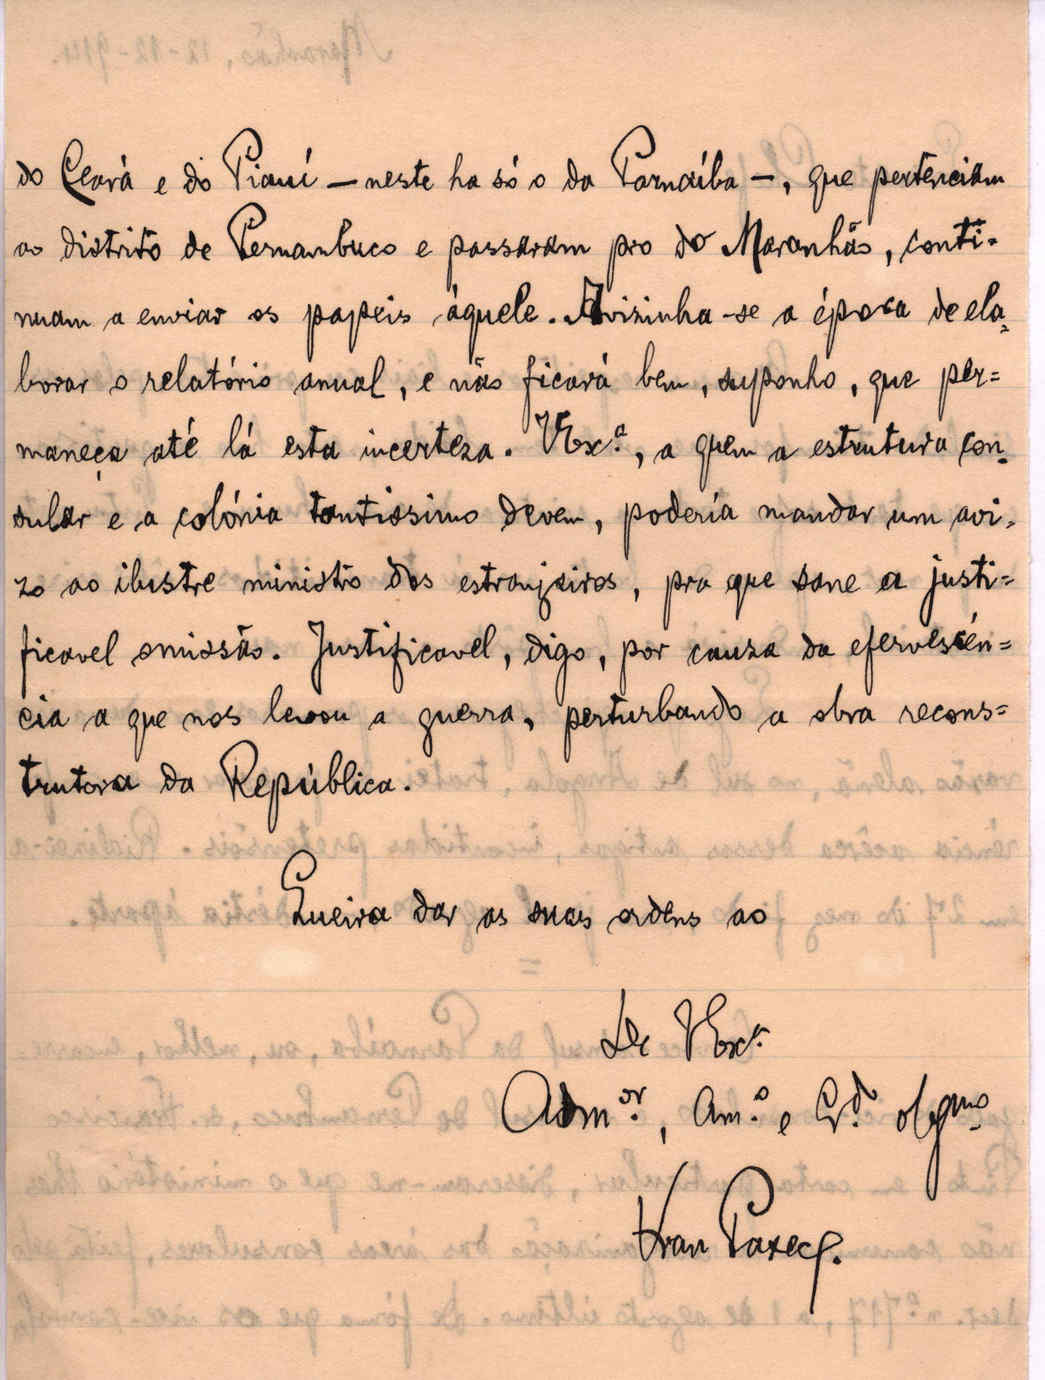 do Ceará e do Piauí — neste ha só o da Parnaíba —, que pertenciam
ao distrito de Pernambuco e passaram pro do Maranhão, conti=
nuam a enviar os papeis áquele. Avizinha-se a época de ela=
borar o relatório anual, e não ficará bem, suponho, que per=
maneça até lá esta incerteza. VExª., a quem a estrutura con=
sular e a colónia tantissimo devem, poderia mandar um avi=
zo ao ilustre ministro dos estranjeiros, pra que sane a justi=
ficavel omissão. Justificavel, digo, por cauza da efervescên=
cia a que nos levou a guerra, perturbando a obra recons=
trutora da República.
Queira dar as suas ordens ao
De VExª.
Adm.or, Am.o e Cr.do obgmo.
Fran Paxeco.